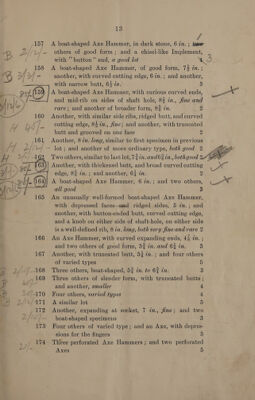 13
157 A boat-shaped Axe Hammer, in dark stone, 6 in.;
others of good form; and a chisel-like Implement,
with "button" end, a good lot
158 A boat-shaped Axe Hammer, of good form, 7½ in.;
another, with curved cutting edge, 6 in.; and another,
with narrow butt, 6½ in. 3
159 A boat-shaped Axe Hammer, with curious curved ends,
and mid-rib on sides of shaft hole, 8½ in., fine and
rare; and another of broader form, 8½ in. 2
160 Another, with similar side ribs, ridged butt, and curved
cutting edge, 8½ in., fine; and another, with truncated
butt and grooved on one face 2
161 Another, 8 in. long, similar to first specimen in previous
lot; and another of more ordinary type, both good 2
162 Two others, similar to last lot, 7½ in. and 6½ in., both good 2
163 Another, with thickened butt, and broad curved cutting
edge, 8½ in.; and another, 6½ in. 2
164 A boat-shaped Axe Hammer, 6 in.; and two others,
all good 3
165 An unusually well-formed boat-shaped Axe Hammer,
with depressed faces and ridged sides, 5 in.; and
another, with button-ended butt, curved cutting edge,
and a knob on either side of shaft-hole, on either side
is a well-defined rib, 8 in. long, both very fine and rare 2
166 An Axe Hammer, with curved expanding ends, 4½ in.;
and two others of good form, 5½ in. and 6½ in. 3
167 Another, with truncated butt, 5½ in.; and four others
of varied types 5
168 Three others, boat-shaped, 5½ in. to 6½ in. 3
169 Three others of slender form, with truncated butts;
and another, smaller 4
170 Four others, varied types 4
171 A similar lot 5
172 Another, expanding at socket, 7 in., fine; and two
boat-shaped specimens 3
173 Four others of varied type; and an Axe, with depres-
sions for the fingers 5
174 Three perforated Axe Hammers; and two perforated
Axes 5